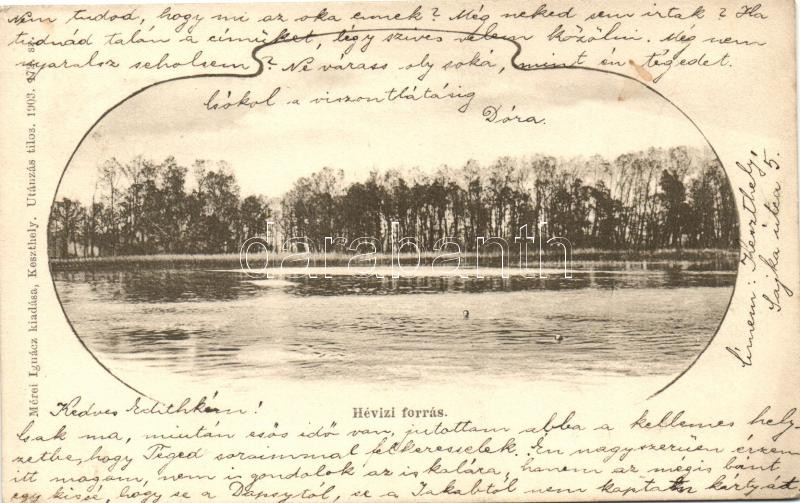 Nem tudod, hogy mi az oka ennek? Még neked sem irtak? Ha
tudnád talán a címüket, légy szíves velem közölni. Még nem
nyaralsz sehol sem? Ne várass oly soká, mint én tégedet.
Csókol a viszontlátásig
Dóra.
Mérei Ignácz kiadása, Keszthely. Utánzás tilos. 1903.
darabanth
Címem: Keszthely,
utca 5.
Hévizi forrás.
Kedves Edithkém!
Csak ma, miután esős idő van, jutottam abba a kellemes hely-
zetbe, hogy Téged soraimmal felkeresselek. Én nagyszerűen érzem
itt magam, nem is gondolok az iskolára, hanem az mégis bánt
egy kissé, hogy se a se a Jakabtól nem kaptam kártyát